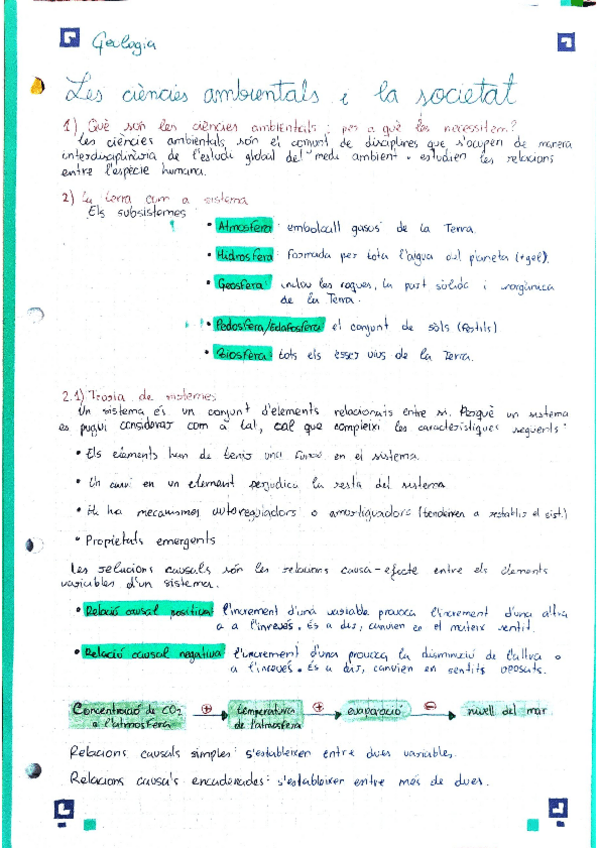 Geologia
Les ciències ambientals i la societat
1) Què són les ciències ambientals i per a què les necessitem?
Les ciències ambientals són el conjunt de disciplines que s'ocupen de manera
interdisciplinària de l'estudi global del medi ambient i estudien les relacions
entre l'espècie humana.
2) La terra com a sistema
Els subsistemes
• Atmosfera: embolcall gasós de la Terra.
• Hidrosfera: formada per tota l'aigua del planeta (+gel).
• Geosfera: inclou les roques, la part sòlida i inorgànica
de la Terra.
• Pedosfera/Edafosfera: el conjunt de sòls (fèrtils)
• Biosfera: tots els éssers vius de la Terra.
2.1) Teoria de sistemes
Un sistema és un conjunt d'elements relacionats entre si. Perquè un sistema
es pugui considerar com a tal, cal que compleixi les característiques següents:
• Els elements han de tenir una funció en el sistema.
• Un canvi en un element perjudica la resta del sistema
• Hi ha mecanismes autoreguladors o amortiguadors (tendeixen a restablir el sist.)
• Propietats emergents
Les relacions causals són les relacions causa-efecte entre els elements
variables d'un sistema.
• Relació causal positiva: l'increment d'una variable provoca l'increment d'una altra
o a l'inrevés. És a dir, canvien en el mateix sentit.
• Relació causal negativa: l'increment d'una provoca la disminució de l'altra o
a l'inrevés. És a dir, canvien en sentits oposats.
Concentració de CO2 a l'atmosfera ⊕→ temperatura de l'atmosfera ⊕→ evaporació ⊖→ nivell del mar
Relacions causals simples: s'estableixen entre dues variables.
Relacions causals encadenades: s'estableixen entre més de dues.